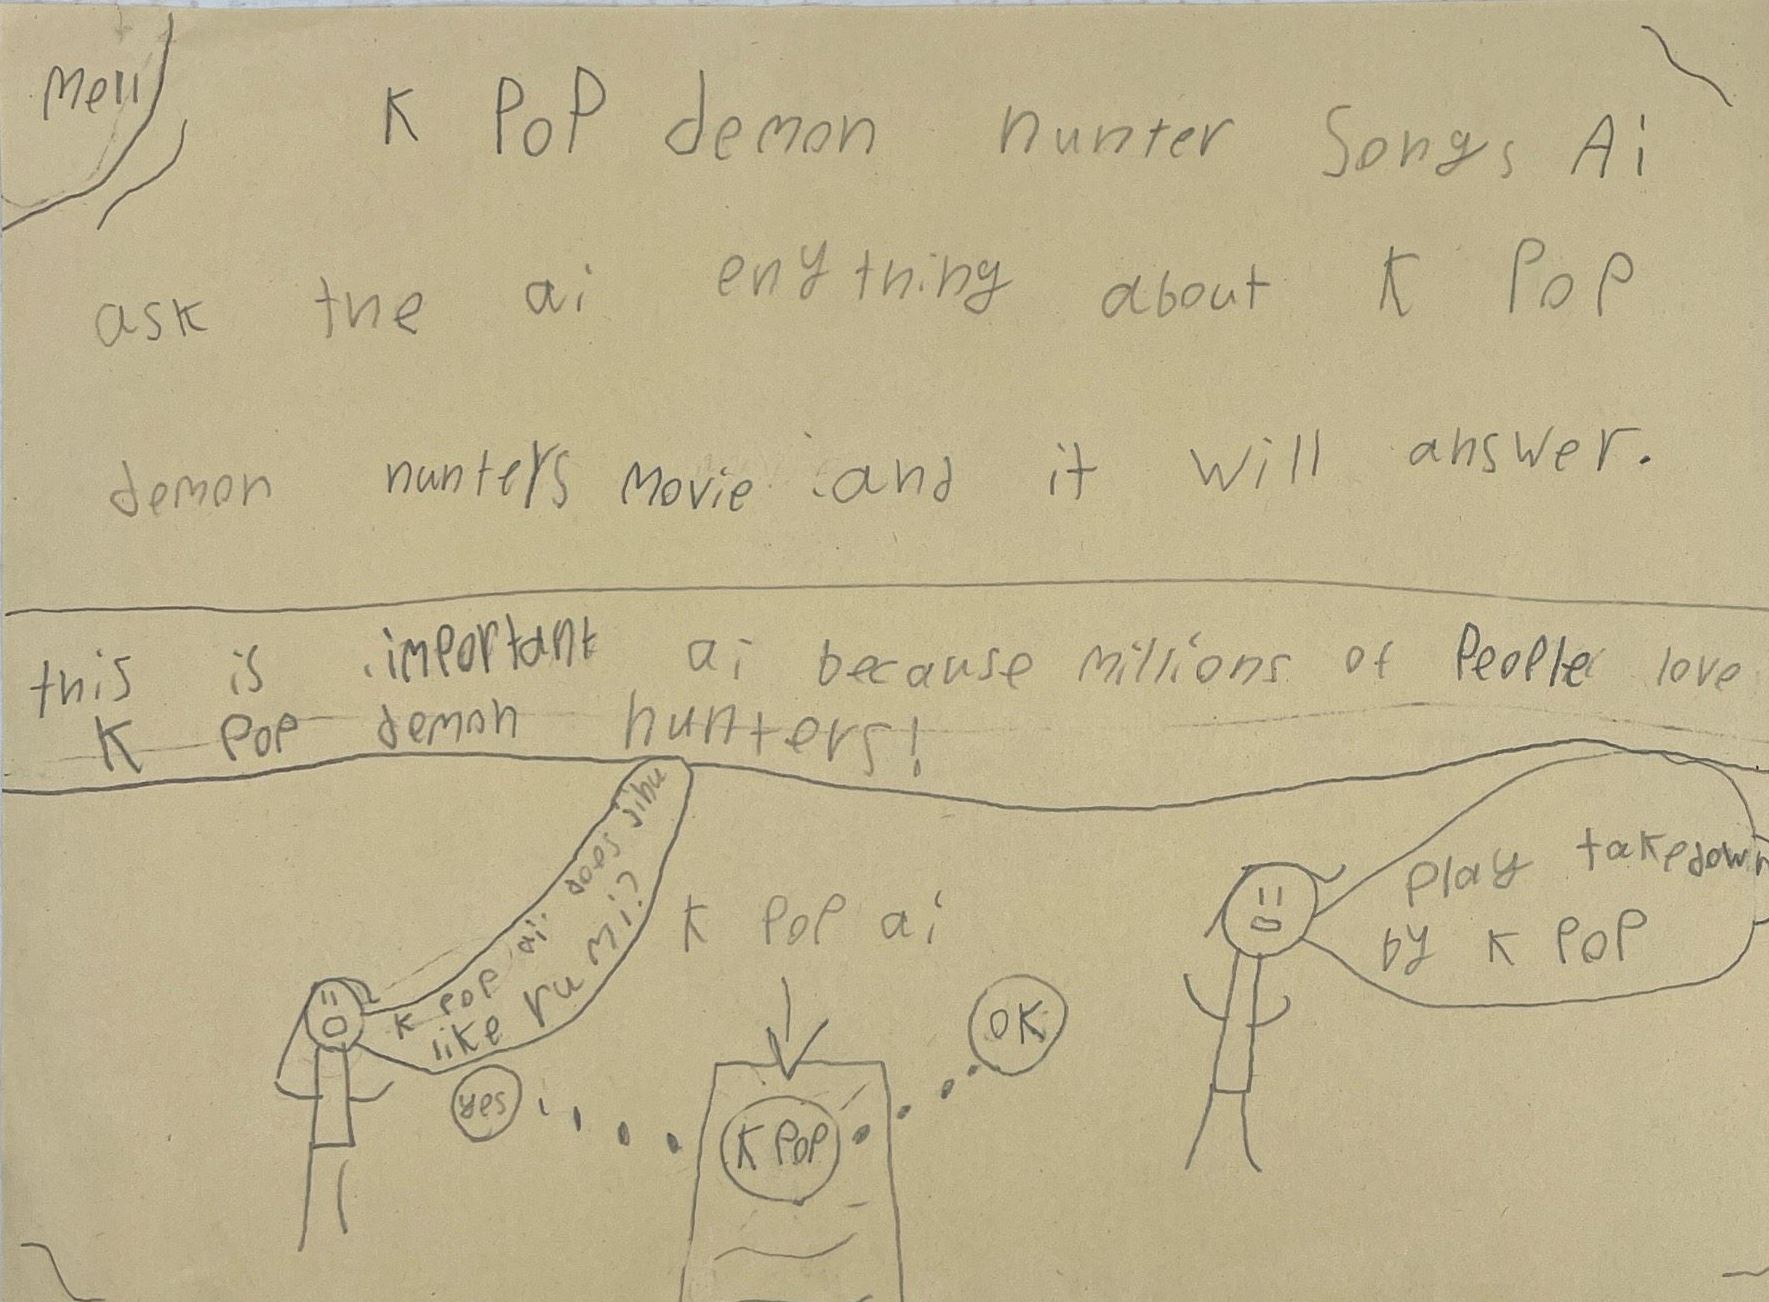 Mell
K PoP demon hunter Songs Ai
ask the ai enything about K PoP
demon hunters Movie and it will answer.
this is important ai because millions of People love
K PoP demon hunters!
K POP ai does jihu
like ru mi?
K PoP ai
play takedown
by K POP
OK
yes
K POP